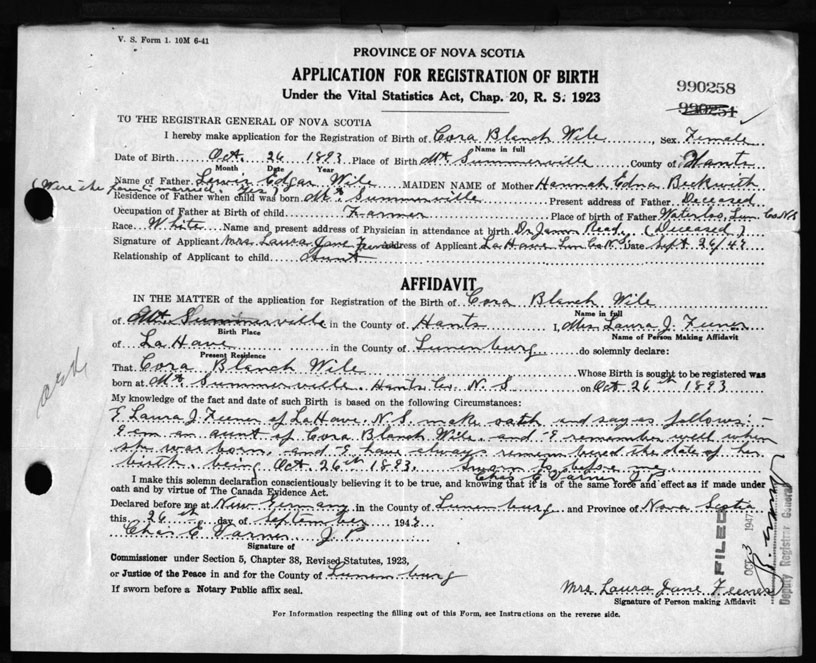 V. S. Form 1. 10M 6-41
PROVINCE OF NOVA SCOTIA
APPLICATION FOR REGISTRATION OF BIRTH
Under the Vital Statistics Act, Chap. 20, R. S. 1923
990258
990251
TO THE REGISTRAR GENERAL OF NOVA SCOTIA
I hereby make application for the Registration of Birth of Cora Blanch Wile, Sex Female
Name in full
Date of Birth Oct. 26 1893 Place of Birth Mt Summerville County of Hants
Month Date Year
Name of Father Lewis Edgar Wile MAIDEN NAME of Mother Hannah Edna Beckwith
(Were the parents married? Yes)
Residence of Father when child was born Mt Summerville Present address of Father Deceased
Occupation of Father at Birth of child Farmer Place of birth of Father Waterloo, Lun Co N S
Race White Name and present address of Physician in attendance at birth Dr James Read. (Deceased)
Signature of Applicant Mrs. Laura Jane Feener Address of Applicant LaHave Lun Co N S Date Sept 26/47
Relationship of Applicant to child Aunt
AFFIDAVIT
IN THE MATTER of the application for Registration of the Birth of Cora Blanch Wile
Name in full
of Mt Summerville in the County of Hants I, Mrs Laura J. Feener
Birth Place Name of Person Making Affidavit
of LaHave in the County of Lunenburg do solemnly declare:
Present Residence
That Cora Blanch Wile Whose Birth is sought to be registered was
born at Mt Summerville Hants Co. N. S on Oct 26th 1893
My knowledge of the fact and date of such Birth is based on the following Circumstances:
I Laura J. Feener of LaHave N. S. make oath and say as follows:-
I am an aunt of Cora Blanch Wile. and I remember well when
she was born, and I have always remembered the date of her
birth, being Oct 26th 1893. Sworn to before me
Chas E Varner J P
I make this solemn declaration conscientiously believing it to be true, and knowing that it is of the same force and effect as if made under
oath and by virtue of The Canada Evidence Act.
Declared before me at New Germany in the County of Lunenburg and Province of Nova Scotia
this 26th day of September 1947
Chas E. Varner J. P
Signature of
Commissioner under Section 5, Chapter 38, Revised Statutes, 1923,
or Justice of the Peace in and for the County of Lunenburg
If sworn before a Notary Public affix seal.
Mrs Laura Jane Feener
Signature of Person making Affidavit
For Information respecting the filling out of this Form, see Instructions on the reverse side.
FILED
OCT 3 1947
Deputy Registrar General